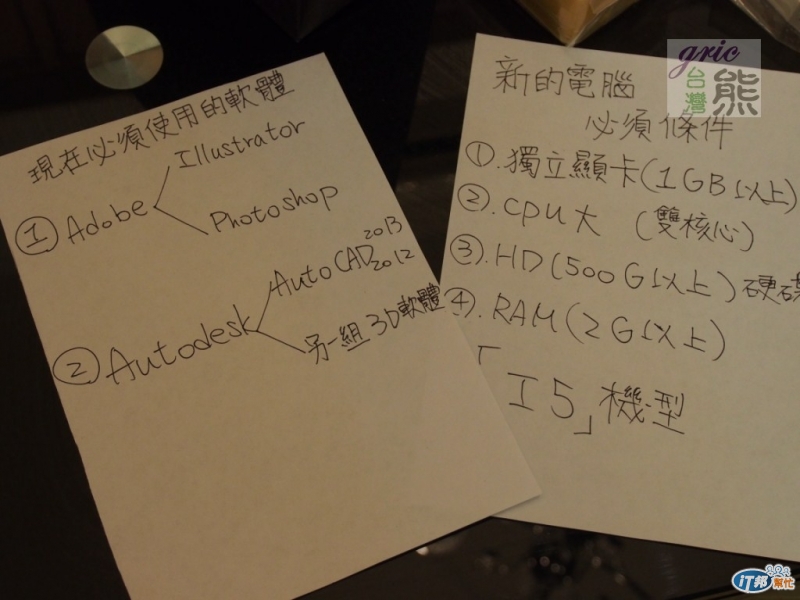 現在必須使用的軟體
① Adobe
Illustrator
Photoshop
② Autodesk
AutoCAD 2013 2012
另一組 3D軟體
新的電腦
必須條件
①.獨立顯卡(1GB以上)
②.cpu大 (雙核心)
③.HD(500G以上)硬碟
④.RAM(2G以上)
「I5」機型
gric
台灣熊
iT邦幫忙